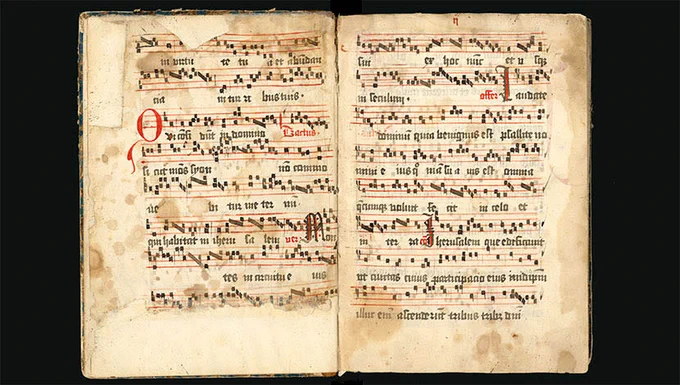 in virtu te tu a et abūdan
cia in tur ri bus tuis .
Qui cōfi dūt in domino Tractus.
si cut mōs syon nō commo
ve bi tur in e ter nū
qui habitat in iheru sa lem ver Mon
tes in circuitu e ius
ii
sui ex hoc nunc et u sqꝫ
in seculum . offer Laudate
dominū quia benignus est psallite no
mini e ius qm̄ sua vis est omnia
voluit fe cit in celo et
in ter ra cō Iherusalem que edificatur
ut civitas cuius participacio eius
illuc em̄ ascenderūt tribus tribꝰ